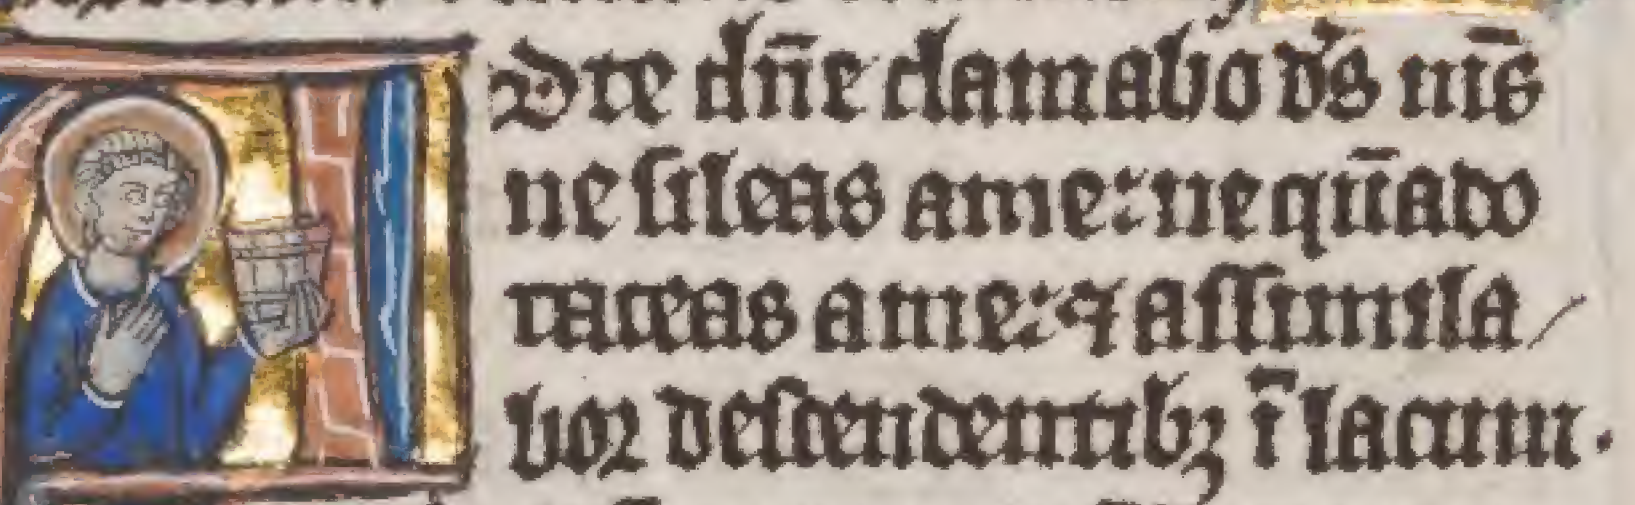 Dte dn̄e clamabo ds̄ m̄s
ne sileas a me: ne qn̄ado
taceas a me: ⁊ assimila/
bor descendentibꝫ ī lacum.